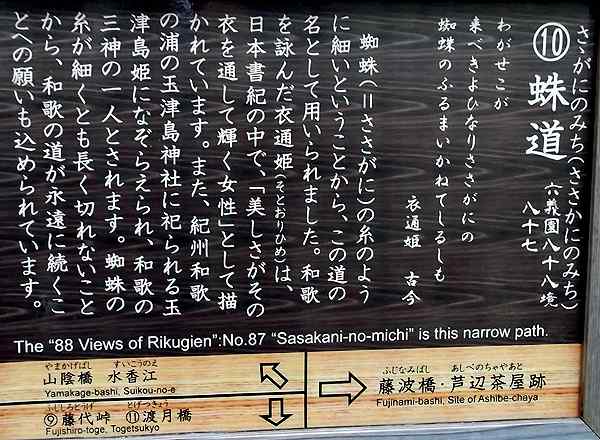 さゝがにのみち(ささかにのみち)
⑩ 蛛道
六義園八十八境
八十七
わがせこが
来べきよひなりささがにの
蜘蛛のふるまいかねてしるしも
衣通姫 古今
蜘蛛(=ささがに)の糸のよう
に細いということから、この道の
名として用いられました。和歌
を詠んだ衣通姫(そとおりひめ)は、
日本書紀の中で、「美しさがその
衣を通して輝く女性」として描
かれています。また、紀州和歌
の浦の玉津島神社に祀られる玉
津島姫になぞらえられ、和歌の
三神の一人とされます。蜘蛛の
糸が細くとも長く切れないこと
から、和歌の道が永遠に続くこ
とへの願いも込められています。
The “88 Views of Rikugien”:No.87 “Sasakani-no-michi” is this narrow path.
やまかげばし すいこうのえ
山陰橋 水香江
Yamakage-bashi, Suikou-no-e
ふじしろとうげ とげつきょう
⑨藤代峠 ⑪渡月橋
Fujishiro-toge, Togetsukyo
ふじなみばし あしべのちゃやあと
藤波橋・芦辺茶屋跡
Fujinami-bashi, Site of Ashibe-chaya